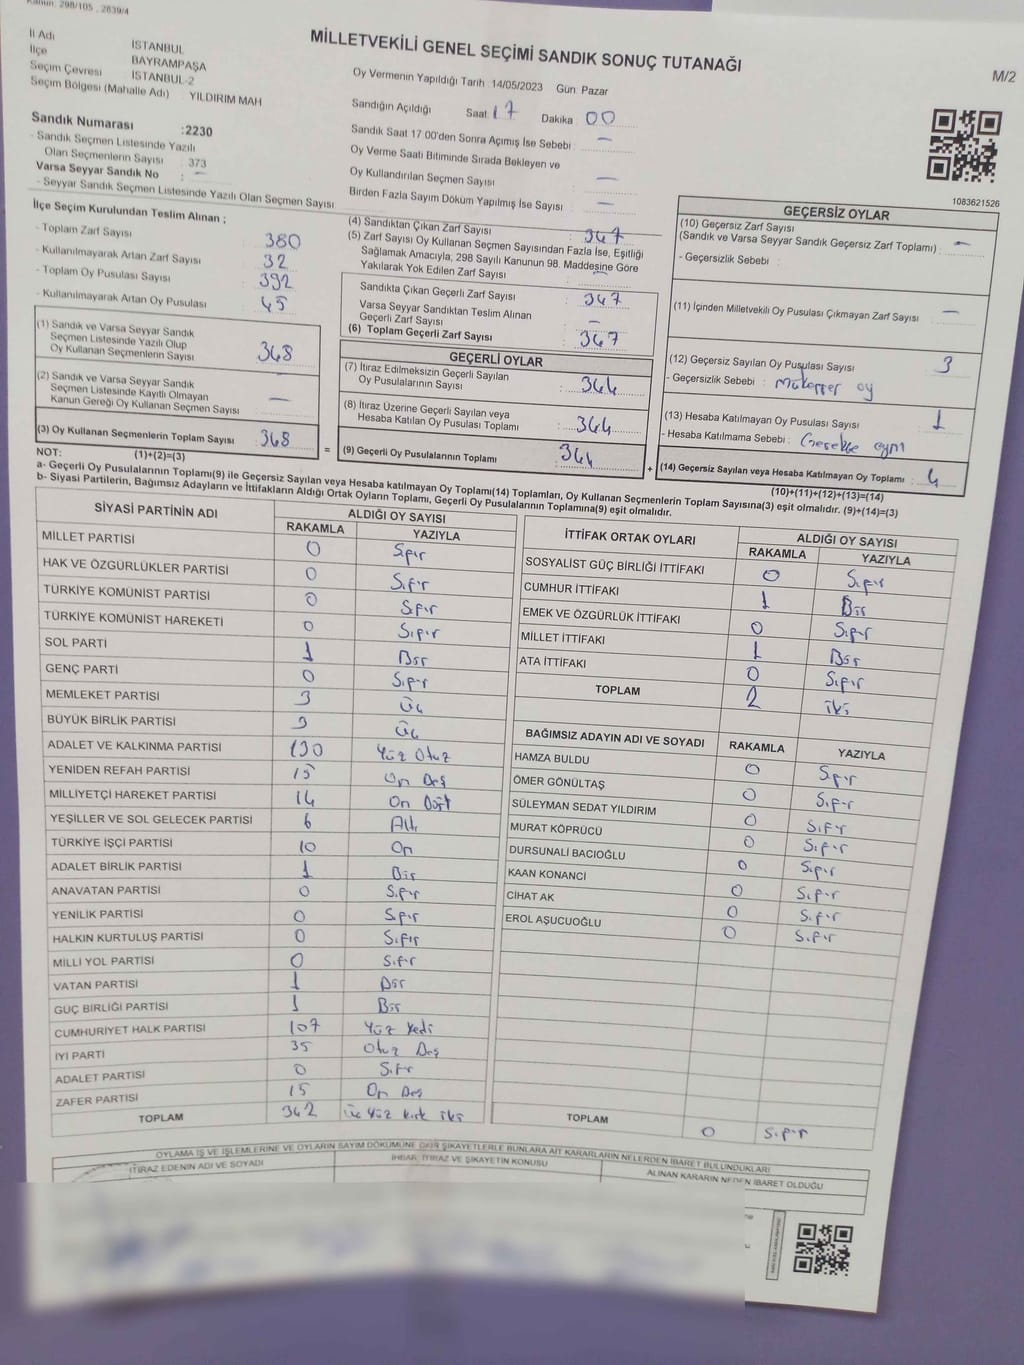 Kanun: 298/105 , 2839/4
MİLLETVEKİLİ GENEL SEÇİMİ SANDIK SONUÇ TUTANAĞI
M/2
İl Adı İSTANBUL
İlçe BAYRAMPAŞA
Seçim Çevresi İSTANBUL-2
Seçim Bölgesi (Mahalle Adı) YILDIRIM MAH
Sandık Numarası :2230
- Sandık Seçmen Listesinde Yazılı
Olan Seçmenlerin Sayısı : 373
Varsa Seyyar Sandık No : —
- Seyyar Sandık Seçmen Listesinde Yazılı Olan Seçmen Sayısı
Oy Vermenin Yapıldığı Tarih :14/05/2023 Gün: Pazar
Sandığın Açıldığı Saat 17 Dakika 00
Sandık Saat 17 00'den Sonra Açımış İse Sebebi : —
Oy Verme Saati Bitiminde Sırada Bekleyen ve
Oy Kullandırılan Seçmen Sayısı : —
Birden Fazla Sayım Döküm Yapılmış İse Sayısı : —
1083621526
İlçe Seçim Kurulundan Teslim Alınan ;
- Toplam Zarf Sayısı : 380
- Kullanılmayarak Artan Zarf Sayısı : 32
- Toplam Oy Pusulası Sayısı : 392
- Kullanılmayarak Artan Oy Pusulası : 45
(1) Sandık ve Varsa Seyyar Sandık
Seçmen Listesinde Yazılı Olup
Oy Kullanan Seçmenlerin Sayısı : 348
(2) Sandık ve Varsa Seyyar Sandık
Seçmen Listesinde Kayıtlı Olmayan
Kanun Gereği Oy Kullanan Seçmen Sayısı : —
(3) Oy Kullanan Seçmenlerin Toplam Sayısı : 348
(4) Sandıktan Çıkan Zarf Sayısı : 347
(5) Zarf Sayısı Oy Kullanan Seçmen Sayısından Fazla İse, Eşitliği
Sağlamak Amacıyla, 298 Sayılı Kanunun 98. Maddesine Göre
Yakılarak Yok Edilen Zarf Sayısı : —
Sandıkta Çıkan Geçerli Zarf Sayısı : 347
Varsa Seyyar Sandıktan Teslim Alınan
Geçerli Zarf Sayısı : —
(6) Toplam Geçerli Zarf Sayısı : 347
GEÇERLİ OYLAR
(7) İtiraz Edilmeksizin Geçerli Sayılan
Oy Pusulalarının Sayısı : 344
(8) İtiraz Üzerine Geçerli Sayılan veya
Hesaba Katılan Oy Pusulası Toplamı : 344
= (9) Geçerli Oy Pusulalarının Toplamı : 344
GEÇERSİZ OYLAR
(10) Geçersiz Zarf Sayısı
(Sandık ve Varsa Seyyar Sandık Geçersiz Zarf Toplamı) : —
- Geçersizlik Sebebi :
(11) İçinden Milletvekili Oy Pusulası Çıkmayan Zarf Sayısı : —
(12) Geçersiz Sayılan Oy Pusulası Sayısı : 3
- Geçersizlik Sebebi : Mükerrer oy
(13) Hesaba Katılmayan Oy Pusulası Sayısı : 1
- Hesaba Katılmama Sebebi :
+ (14) Geçersiz Sayılan veya Hesaba Katılmayan Oy Toplamı : 4
NOT: (1)+(2)=(3)
(10)+(11)+(12)+(13)=(14)
a- Geçerli Oy Pusulalarının Toplamı(9) ile Geçersiz Sayılan veya Hesaba katılmayan Oy Toplamı(14) Toplamları, Oy Kullanan Seçmenlerin Toplam Sayısına(3) eşit olmalıdır. (9)+(14)=(3)
b- Siyasi Partilerin, Bağımsız Adayların ve İttifakların Aldığı Ortak Oyların Toplamı, Geçerli Oy Pusulalarının Toplamına(9) eşit olmalıdır.
SİYASİ PARTİNİN ADI ALDIĞI OY SAYISI
RAKAMLA YAZIYLA
MİLLET PARTİSİ 0 Sıfır
HAK VE ÖZGÜRLÜKLER PARTİSİ 0 Sıfır
TÜRKİYE KOMÜNİST PARTİSİ 0 Sıfır
TÜRKİYE KOMÜNİST HAREKETİ 0 Sıfır
SOL PARTİ 1 Bir
GENÇ PARTİ 0 Sıfır
MEMLEKET PARTİSİ 3 Üç
BÜYÜK BİRLİK PARTİSİ 3 Üç
ADALET VE KALKINMA PARTİSİ 130 Yüz Otuz
YENİDEN REFAH PARTİSİ 15 On Beş
MİLLİYETÇİ HAREKET PARTİSİ 14 On Dört
YEŞİLLER VE SOL GELECEK PARTİSİ 6 Altı
TÜRKİYE İŞÇİ PARTİSİ 10 On
ADALET BİRLİK PARTİSİ 1 Bir
ANAVATAN PARTİSİ 0 Sıfır
YENİLİK PARTİSİ 0 Sıfır
HALKIN KURTULUŞ PARTİSİ 0 Sıfır
MİLLİ YOL PARTİSİ 0 Sıfır
VATAN PARTİSİ 1 Bir
GÜÇ BİRLİĞİ PARTİSİ 1 Bir
CUMHURİYET HALK PARTİSİ 107 Yüz Yedi
İYİ PARTİ 35 Otuz Beş
ADALET PARTİSİ 0 Sıfır
ZAFER PARTİSİ 15 On Beş
TOPLAM 342 üç Yüz kırk iki
İTTİFAK ORTAK OYLARI ALDIĞI OY SAYISI
RAKAMLA YAZIYLA
SOSYALİST GÜÇ BİRLİĞİ İTTİFAKI 0 Sıfır
CUMHUR İTTİFAKI 1 Bir
EMEK VE ÖZGÜRLÜK İTTİFAKI 0 Sıfır
MİLLET İTTİFAKI 1 Bir
ATA İTTİFAKI 0 Sıfır
TOPLAM 2 iki
BAĞIMSIZ ADAYIN ADI VE SOYADI RAKAMLA YAZIYLA
HAMZA BULDU 0 Sıfır
ÖMER GÖNÜLTAŞ 0 Sıfır
SÜLEYMAN SEDAT YILDIRIM 0 Sıfır
MURAT KÖPRÜCÜ 0 Sıfır
DURSUNALİ BACIOĞLU 0 Sıfır
KAAN KONANCİ 0 Sıfır
CİHAT AK 0 Sıfır
EROL AŞUCUOĞLU 0 Sıfır
TOPLAM 0 Sıfır
OYLAMA İŞ VE İŞLEMLERİNE VE OYLARIN SAYIM DÖKÜMÜNE DAİR ŞİKAYETLERLE BUNLARA AİT KARARLARIN NELERDEN İBARET BULUNDUKLARI
İTİRAZ EDENİN ADI VE SOYADI İHBAR, İTİRAZ VE ŞİKAYETİN KONUSU ALINAN KARARIN NEDEN İBARET OLDUĞU